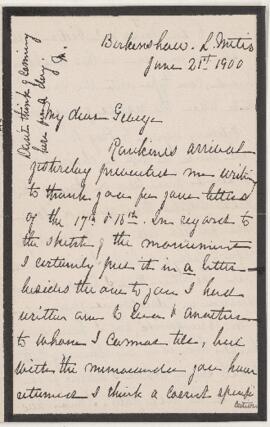 Birkenshaw. L. Metis
June 21st 1900
Do in think of coming
here some day.
M.
My dear George
Rankine's arrival
yesterday prevented me writing
to thank you for your letters
of the 17th & 18th. In regard to
the sketch of the monument
I certainly put it in a letter
besides the one to you I had
written one to & another
to whom I cannot tell, but
with the memoranda you have
returned I think a correct specifi
cation